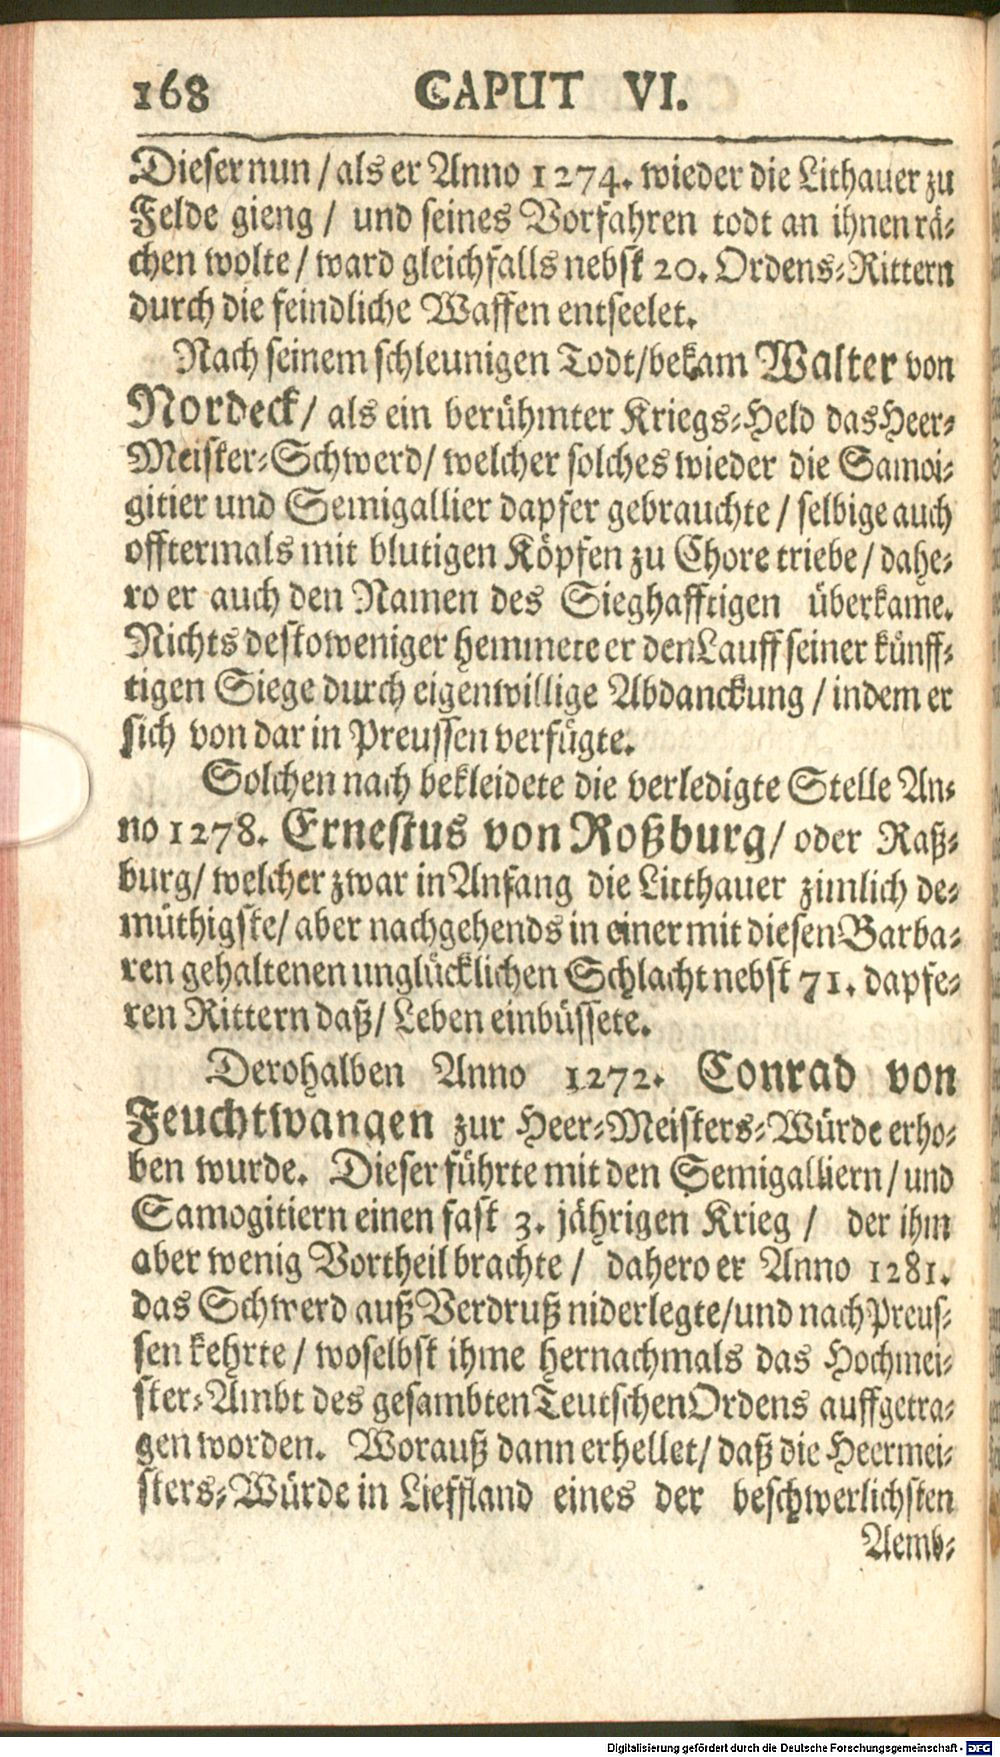 168 CAPUT VI.
Dieser nun / als er Anno 1274. wieder die Lithauer zu
Felde gieng / und seines Vorfahren todt an ihnen rä-
chen wolte / ward gleichfalls nebst 20. Ordens-Rittern
durch die feindliche Waffen entseelet.
Nach seinem schleunigen Todt/bekam Walter von
Nordeck/ als ein berühmter Kriegs-Held das Heer-
Meister-Schwerd/ welcher solches wieder die Samoi-
gitier und Semigallier dapfer gebrauchte / selbige auch
offtermals mit blutigen Köpfen zu Chore triebe / dahe-
ro er auch den Namen des Sieghafftigen überkame.
Nichts destoweniger hemmete er den Lauff seiner künff-
tigen Siege durch eigenwillige Abdanckung / indem er
sich von dar in Preussen verfügte.
Solchen nach bekleidete die verledigte Stelle An-
no 1278. Ernestus von Roßburg/ oder Raß-
burg/ welcher zwar in Anfang die Litthauer zimlich de-
müthigste/ aber nachgehends in einer mit diesen Barba-
ren gehaltenen unglücklichen Schlacht nebst 71. dapfe-
ren Rittern daß/ Leben einbüssete.
Derohalben Anno 1272. Conrad von
Feuchtwangen zur Heer-Meisters-Würde erho-
ben wurde. Dieser führte mit den Semigalliern / und
Samogitiern einen fast 3. jährigen Krieg / der ihm
aber wenig Vortheil brachte / dahero er Anno 1281.
das Schwerd auß Verdruß niderlegte/und nach Preus-
sen kehrte / woselbst ihme hernachmals das Hochmei-
ster-Ambt des gesambten Teutschen Ordens auffgetra-
gen worden. Worauß dann erhellet/ daß die Heermei-
sters-Würde in Lieffland eines der beschwerlichsten
Aemb-
Digitalisierung gefördert durch die Deutsche Forschungsgemeinschaft - DFG